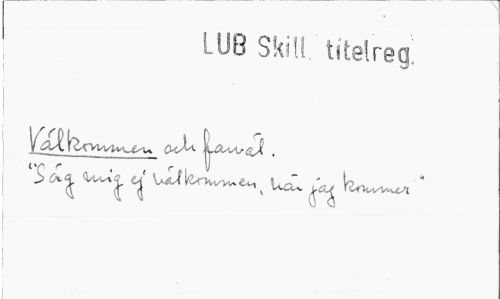 LUB Skill. titelreg.
Välkommen och farväl.
"Säg mig ej välkommen, när jag kommer"